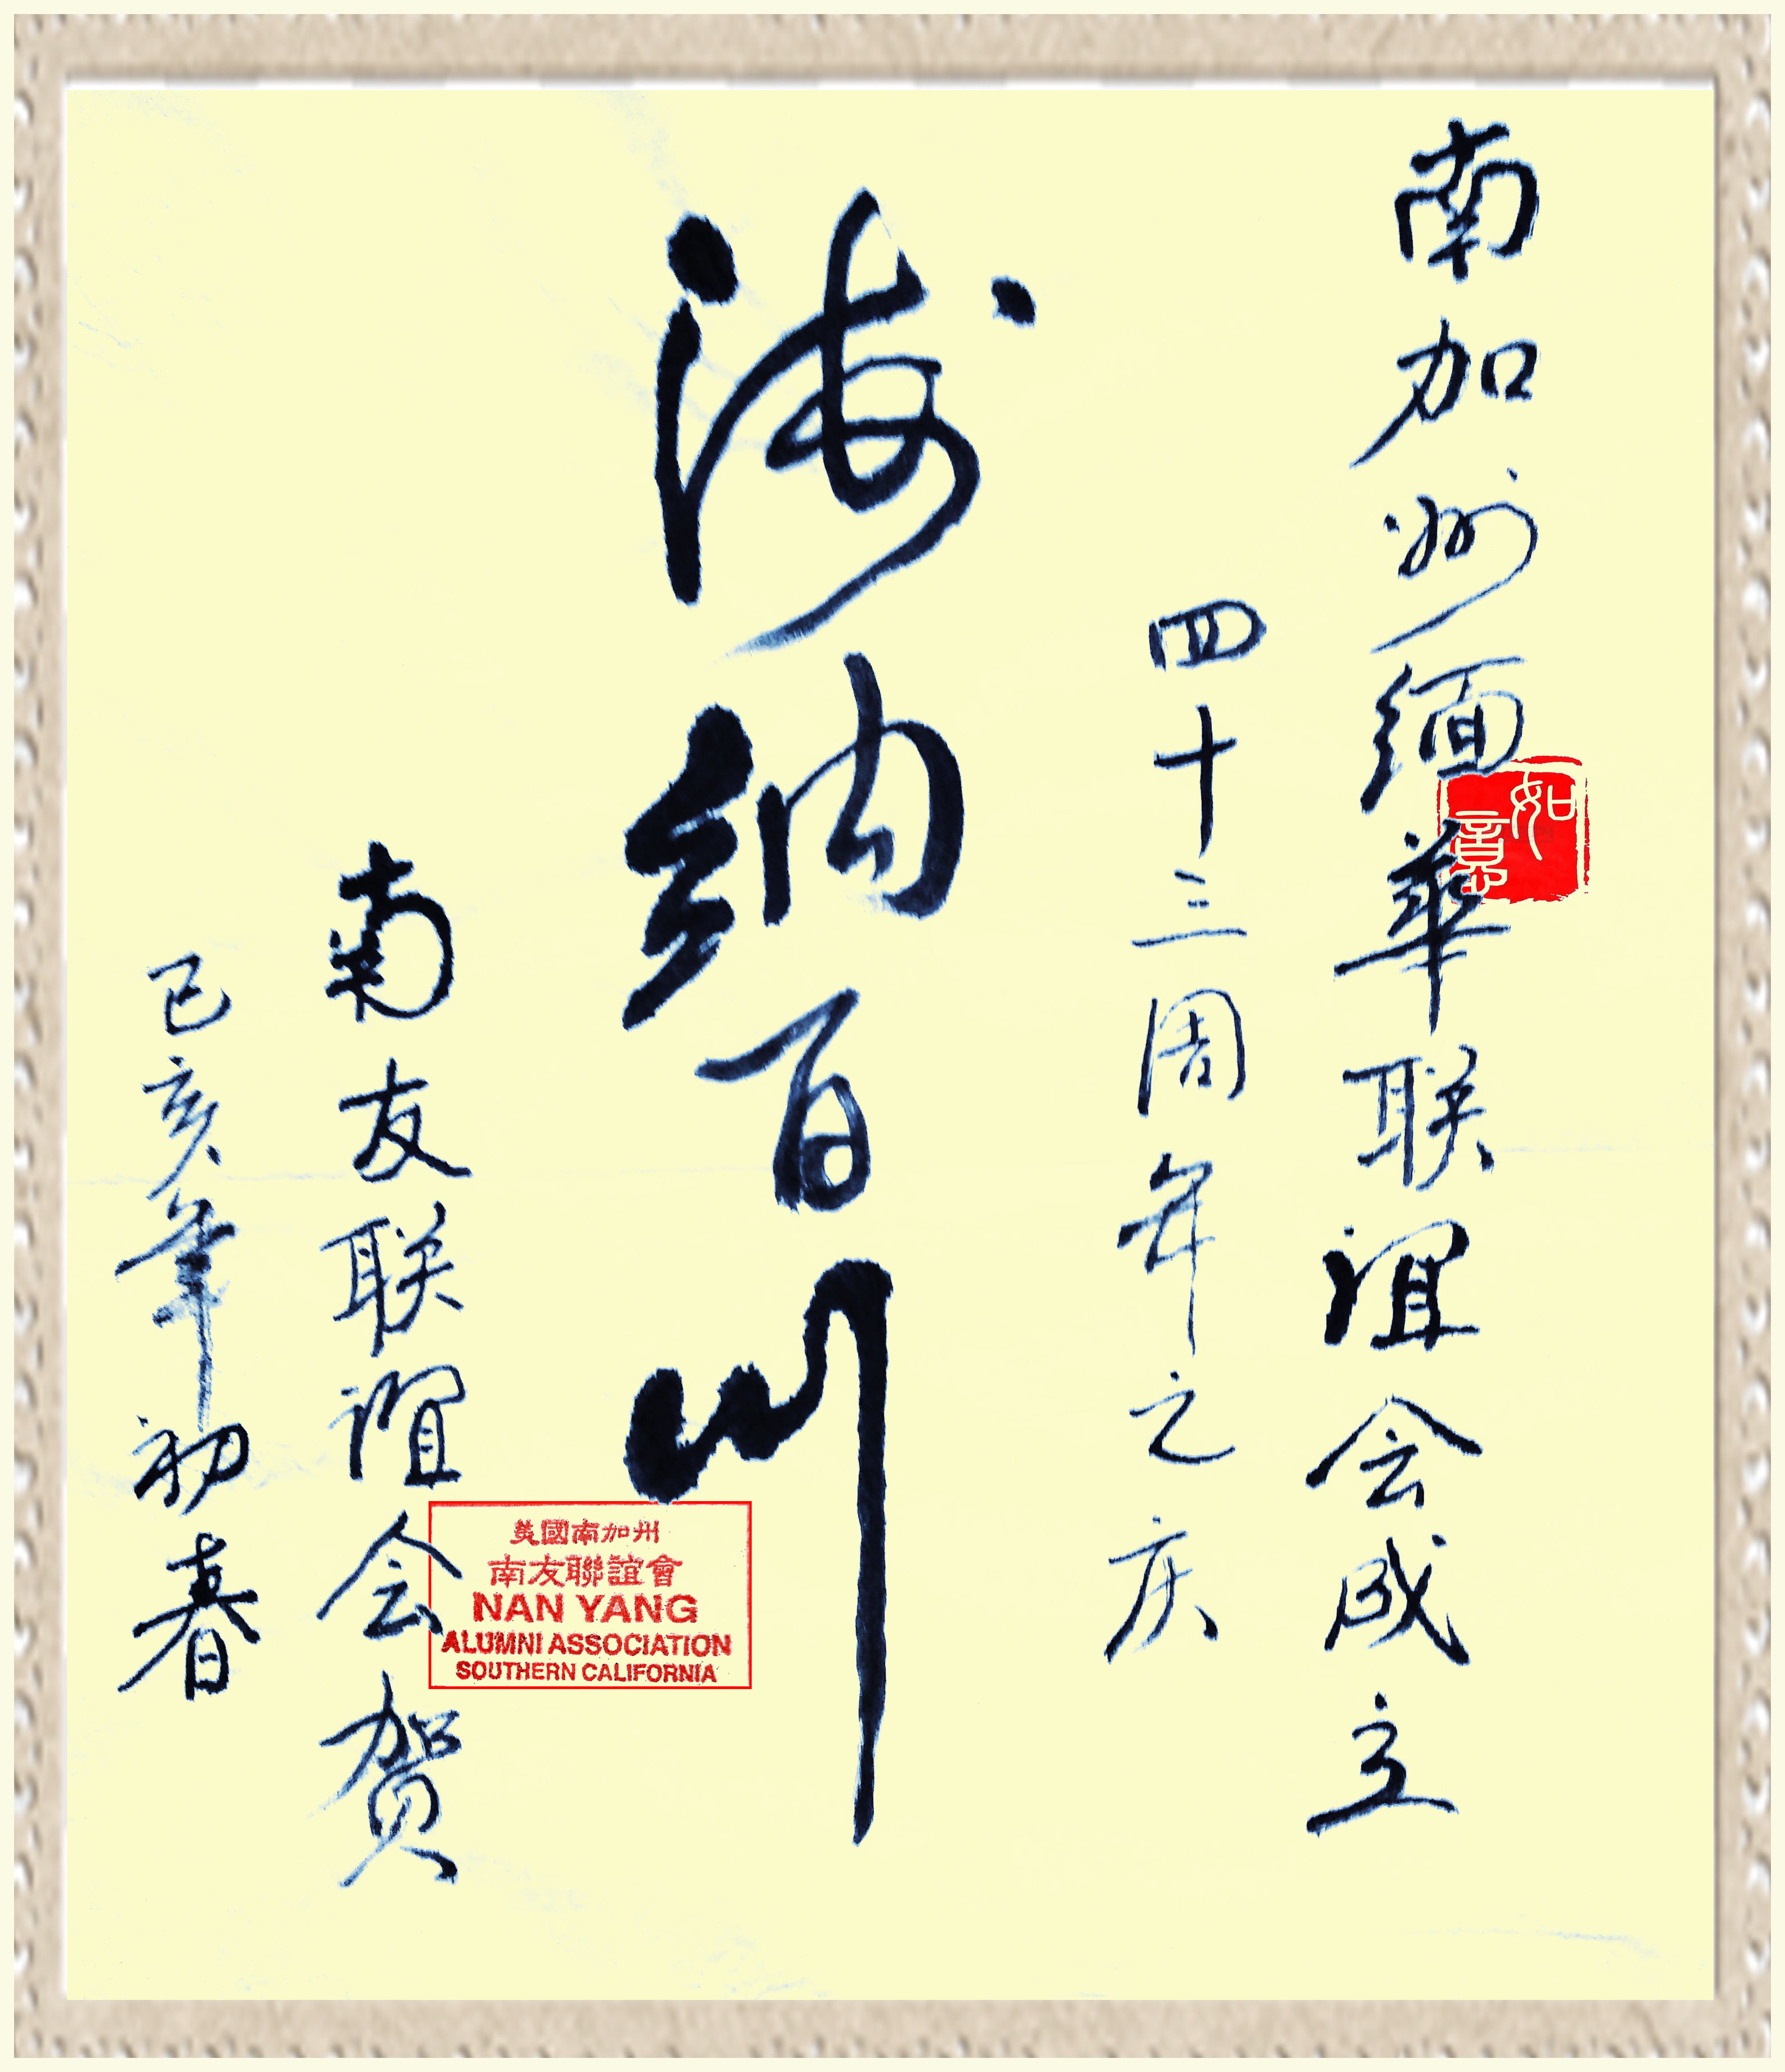 南加州缅華联谊会成立
四十三周年之庆
如意
海纳百川
南友联谊会贺
己亥年初春
美國南加州
南友聯誼會
NAN YANG
ALUMNI ASSOCIATION
SOUTHERN CALIFORNIA